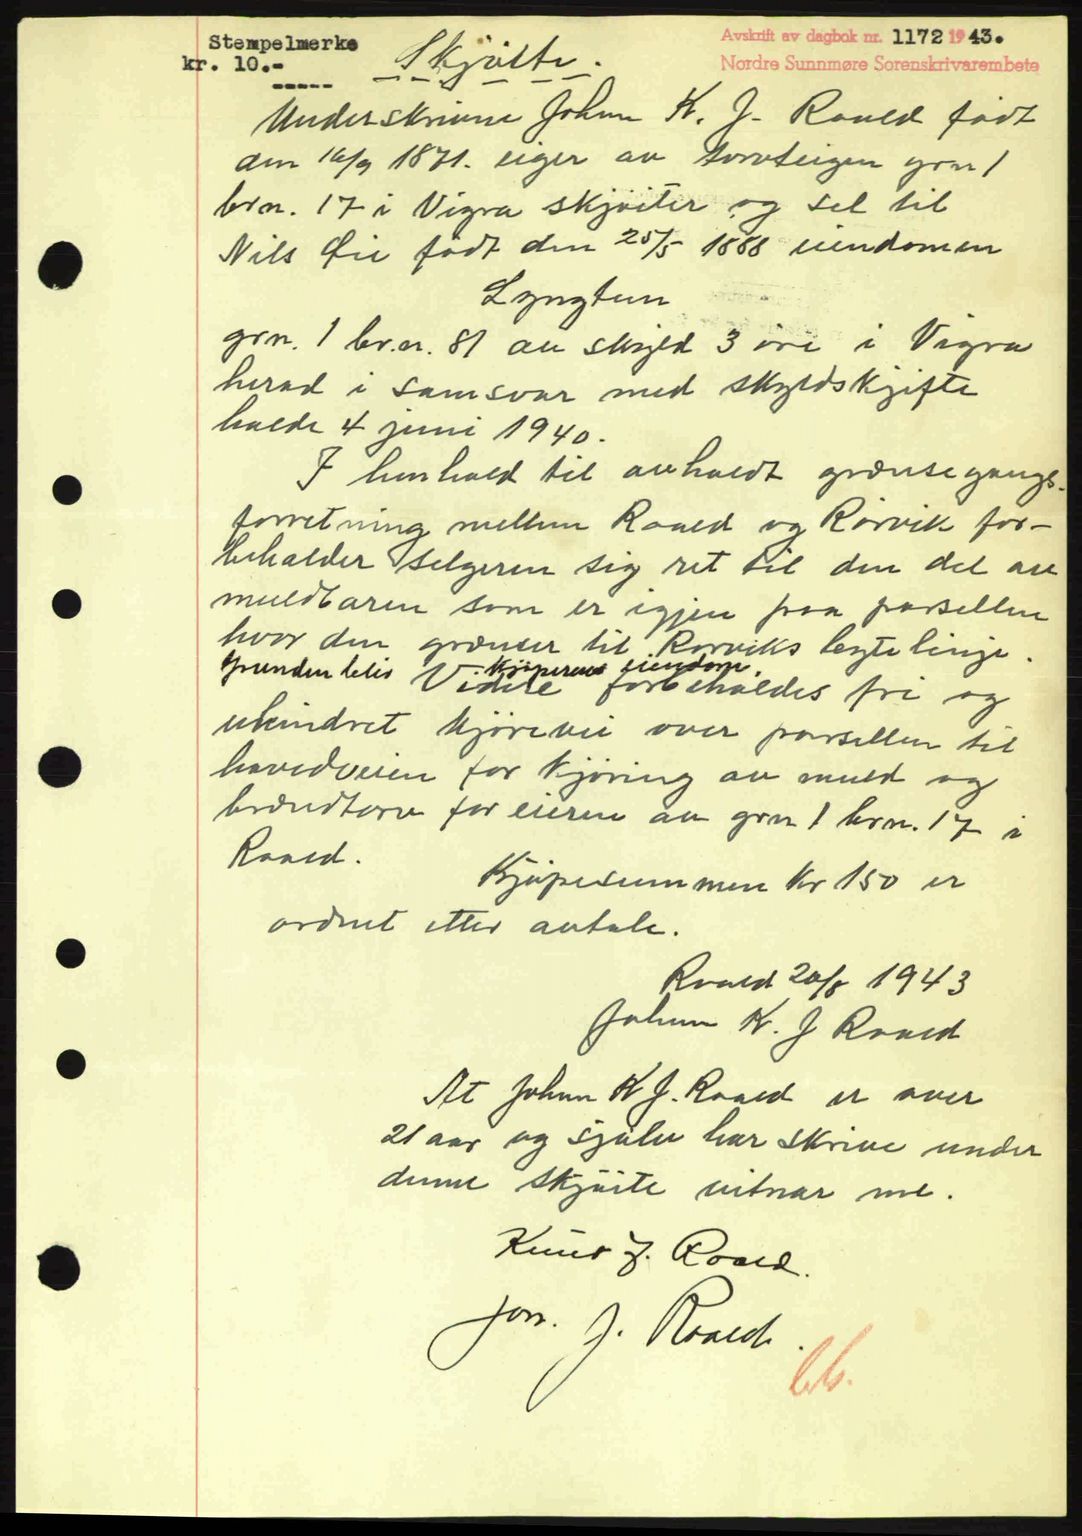 Stempelmerke
kr. 10.-
Skjöite.
Avskrift av dagbok nr. 1172 1943.
Nordre Sunnmøre Sorenskrivarembete
Underskrivne Johan K. J. Roald födt
den 16/9 1871. eiger av torvteigen grn 1
brn. 17 i Vigra skjöiter og sel til
Nils Öie födt den 25/5 1888 eiendomen
Lyngtun
grn. 1 br.n. 81 av skyld 3 öre i Vigra
herad i samsvar med skyldskjifte
halde 4 juni 1940.
I henhold til avholdt grænsegangs-
forretning mellem Roald og Rörvik for-
beholder selgeren sig ret til den del av
muldtaren som er igjen paa parsellen
hvor den grænser til Rorviks bygte linje.
Grunden blir kjöperens eiendom.
Videre forbeholdes fri og
uhindret kjörevei over parsellen til
hovedveien for kjöring av muld og
brændtorv for eieren av grn 1 brn. 17 i
Roald.
Kjöpesummen kr 150 er
ordnet etter avtale.
Roald 20/8 1943
Johan K. J Roald
At Johan K J. Roald er over
21 aar og sjölv har skrive under
denne skjöite vitnar me.
Knut J. Roald.
Jon. J. Roald.